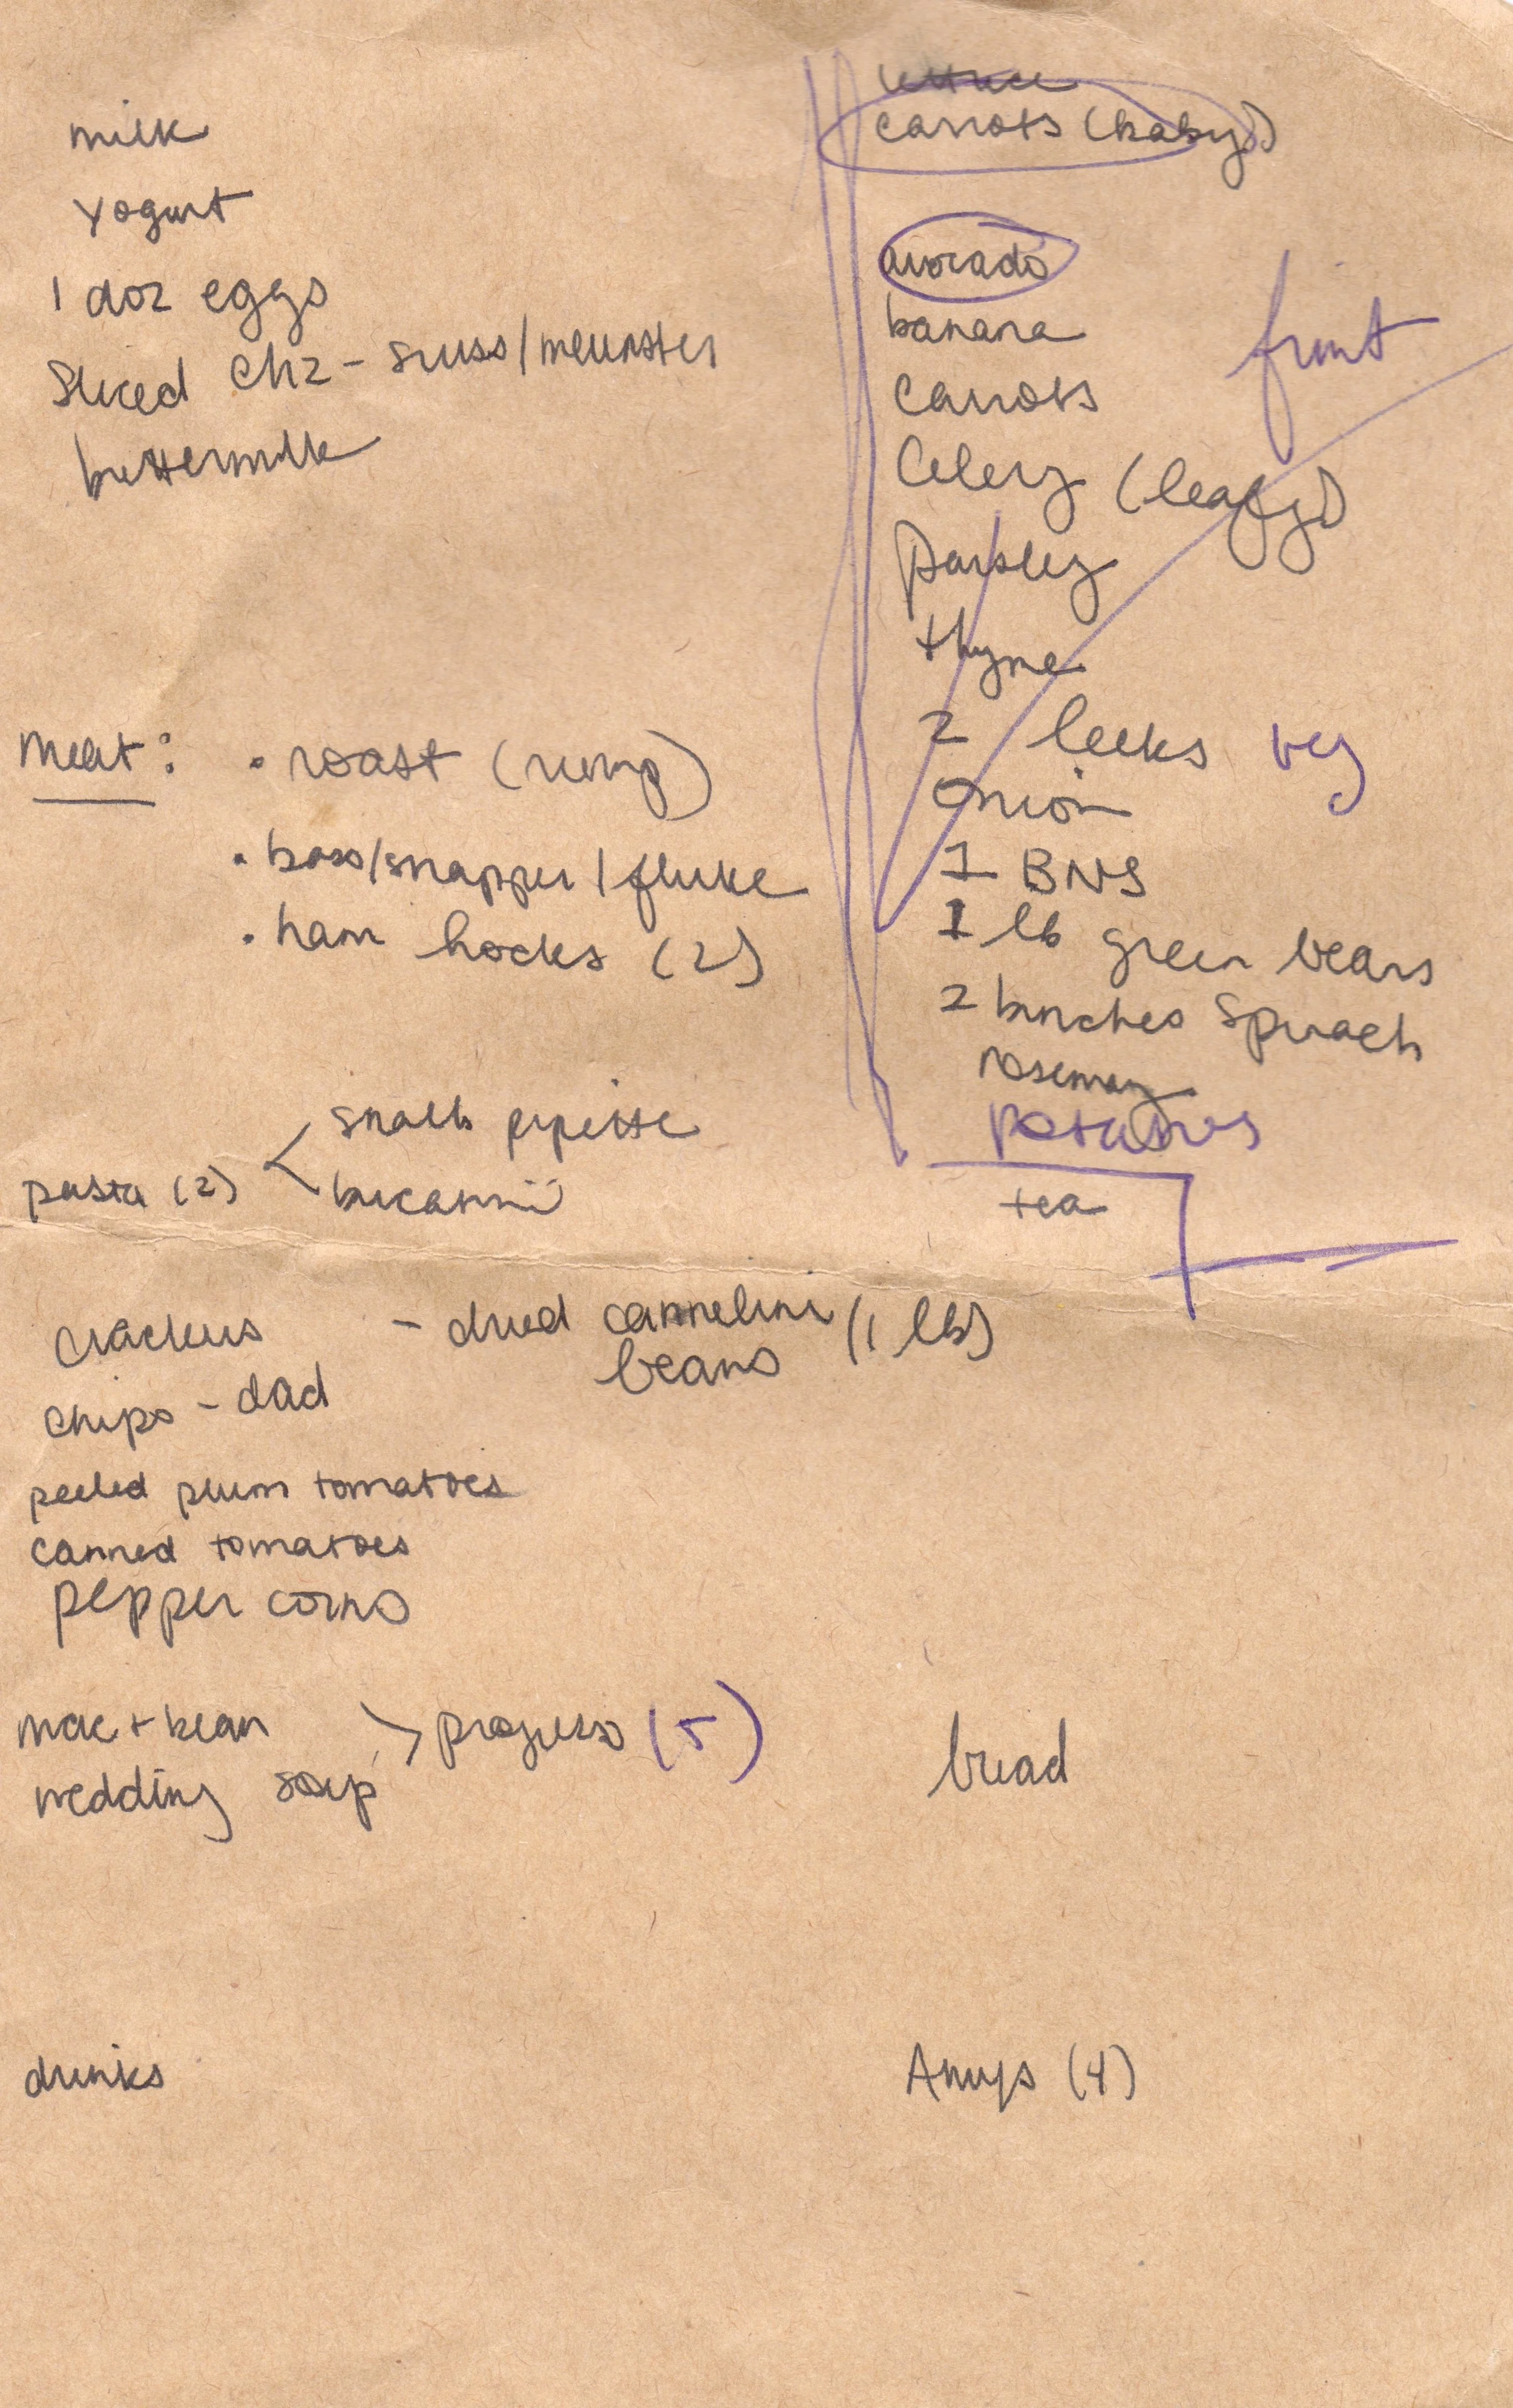 milk
yogurt
1 doz eggs
Sliced chz - swiss/meunster
buttermilk
meat:
• roast (rump)
• bass/snapper/fluke
• ham hocks (2)
pasta (2) <
small pipette
bucatini
crackers
- dried cannelini (1 lb)
beans
chips - dad
peeled plum tomatoes
canned tomatoes
pepper corns
mac + bean
wedding soup
> progresso (5)
drinks
lettuce
carrots (baby)
avocado
banana
carrots
celery (leafy)
parsley
thyme
2 leeks
onion
1 BNS
1 lb green beans
2 bunches spinach
rosemary
potatoes
tea
veg
bread
Amys (4)